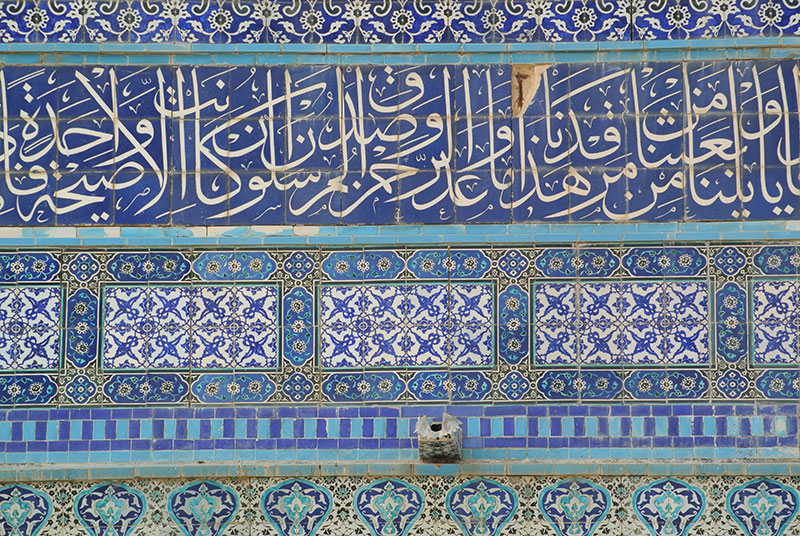 يا ويلنا من بعثنا من مرقدنا هذا ما وعد الرحمن وصدق المرسلون ان كانت الا صيحة واحدة